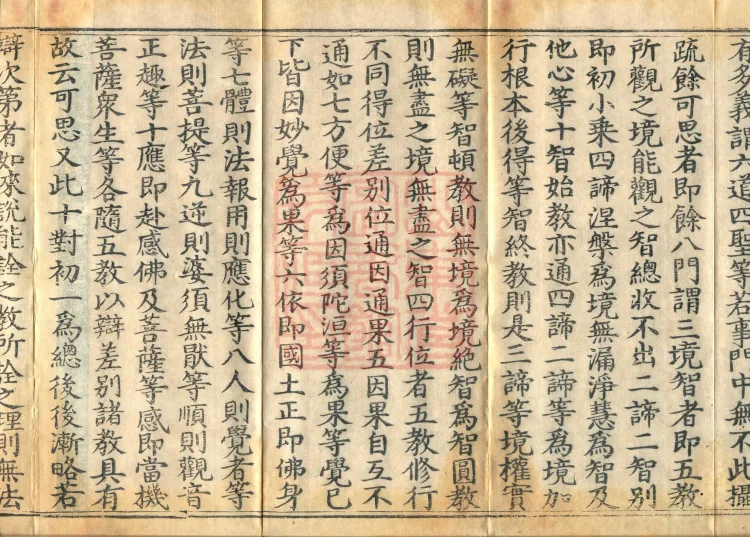 有多義謂六道四聖等若事門中無不此攝
疏餘可思者即餘八門謂三境智者即五教
所觀之境能觀之智總收不出二諦二智別
即初小乘四諦涅槃為境無漏淨慧為智及
他心等十智始教亦通四諦二諦等為境加
行根本後得等智終教則是三諦等境權實
無礙等智頓教則無境為境絕智為智圓教
則無盡之境無盡之智四行位者五教修行
不同得位差別位通因通果五因果自互不
通如七方便等為因須陀洹等為果等覺已
下皆因妙覺為果等六依即國土正即佛身
等七體則法報用則應化等八人則覺者等
法則菩提等九逆則婆須無猒等順則觀音
正趣等十應即赴感佛及菩薩等感即當機
菩薩眾生等各隨五教以辯差別諸教具有
故云可思又此十對初一為總後後漸略若
辯次第者如來說能詮之教所詮之理則無法